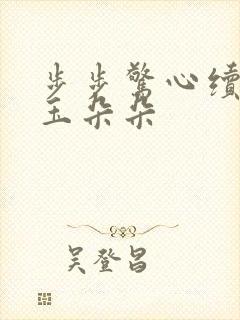 步步驚心續
玉朵朵
吴登昌